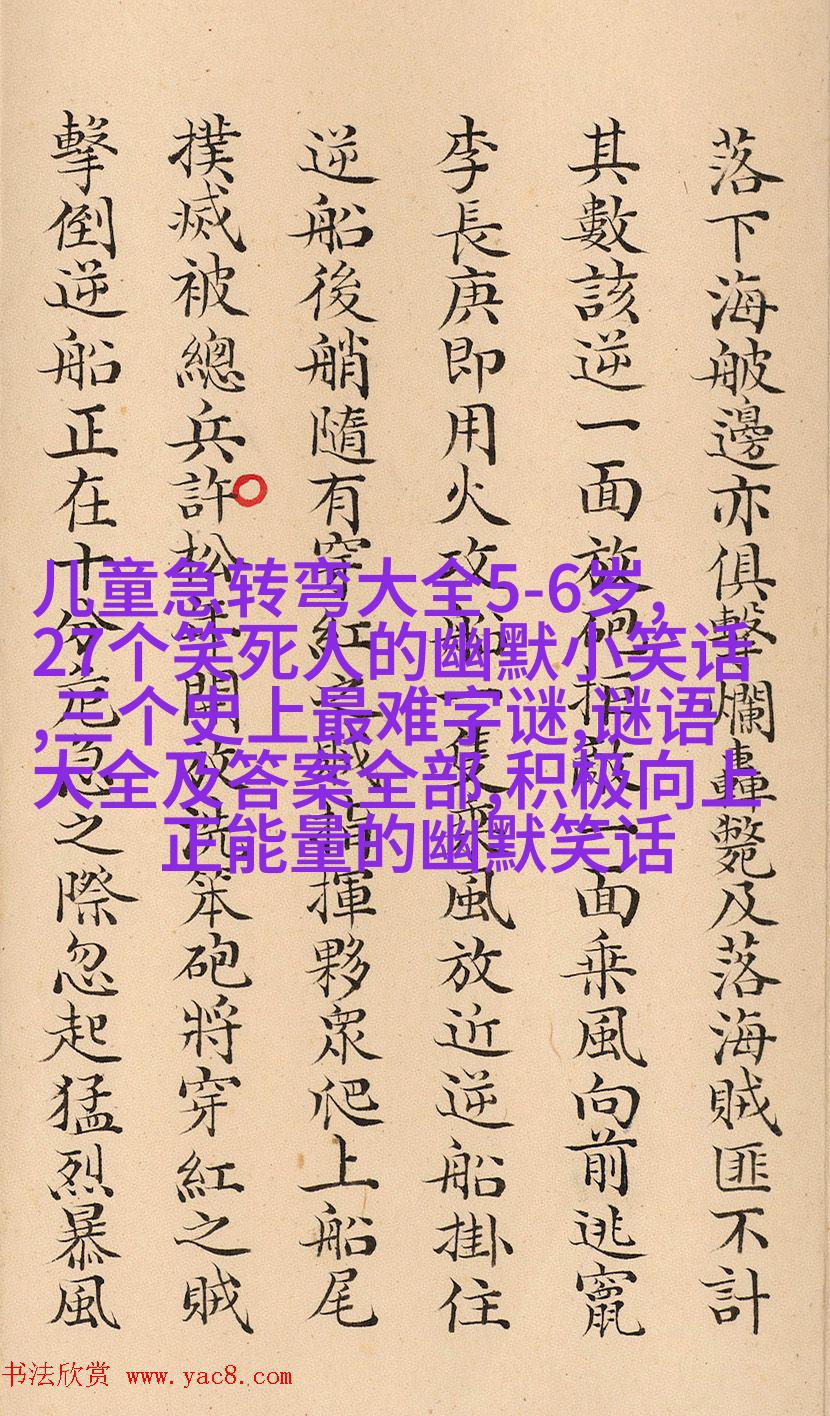 落下海邊亦俱擊爛轟斃及落海賊匪不計
其數該逆一面放砲拒敵一面乘風向前逃竄
李長庚即用火攻船一隻乘風放近逆船掛住
逆船後艄隨有穿紅之賊指揮夥眾爬上船尾
撲滅被總兵許松年開放洗笨砲將穿紅之賊
擊倒逆船正在十分危急之際忽起猛烈暴風
儿童急转弯大全5-6岁,
27个笑死人的幽默小笑话
,三个史上最难字谜,谜语
大全及答案全部,积极向上
正能量的幽默笑话
书法欣赏 www.yac8.com